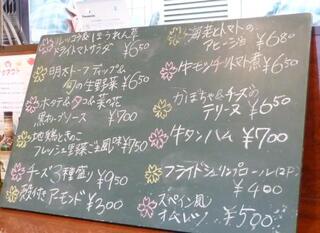 ルッコラ&ほうれん草
ドライトマトサラダ ¥650
明太トーフディップ&
旬の生野菜 ¥650
ホタテ&タコ&菜の花
焦がしソース ¥700
地鶏ときのこ
フレッシュ里 風味 ¥750
チーズ3種盛り ¥950
殻付アーモンド ¥300
海老とトマトの
アヒージョ ¥680
牛モツトマト煮 ¥650
かぼちゃ&チーズの
テリーヌ ¥650
牛タンハム ¥700
フライドシュリンプロール(2P)
¥400
スペイン風
オムレツ ¥500